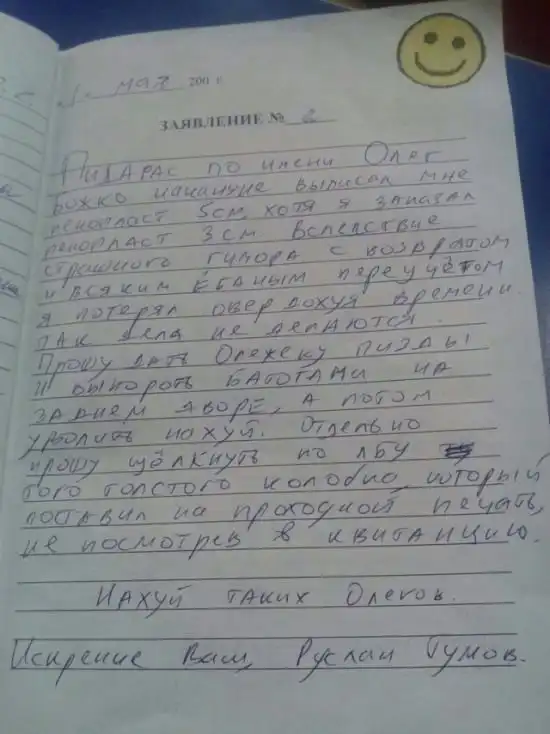 1. мая 200 г.
ЗАЯВЛЕНИЕ № 2
Пидарас по имени Олег
Божко накануне выписал мне
пенопласт 5 см, хотя я заказал
пенопласт 3 см. Вследствие
страшного гумора с возвратом
и всяким ёбаным переучётом
я потерял овердохуя времени.
Так дела не делаются.
Прошу дать Олежеку пизды
и выпороть батогами на
заднем дворе, а потом
уволить нахуй. Отдельно
прошу щёлкнуть по лбу
того толстого колобка, который
поставил на проходной печать,
не посмотрев в квитанцию.
Нахуй таких Олегов.
Искренне Ваш, Руслан Гумов.